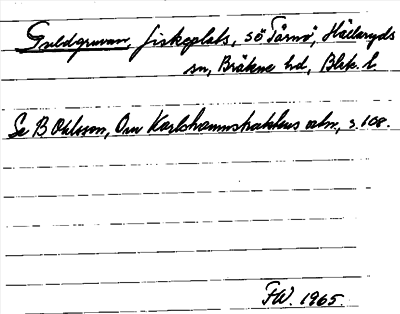 Guldgruvan, fiskeplats, sö Tärnö, Hällaryds
sn, Bräkne hd, Blek. l
Se B Ohlsson, Om Karlshamnstraktens valn, s. 108.
FW. 1965.